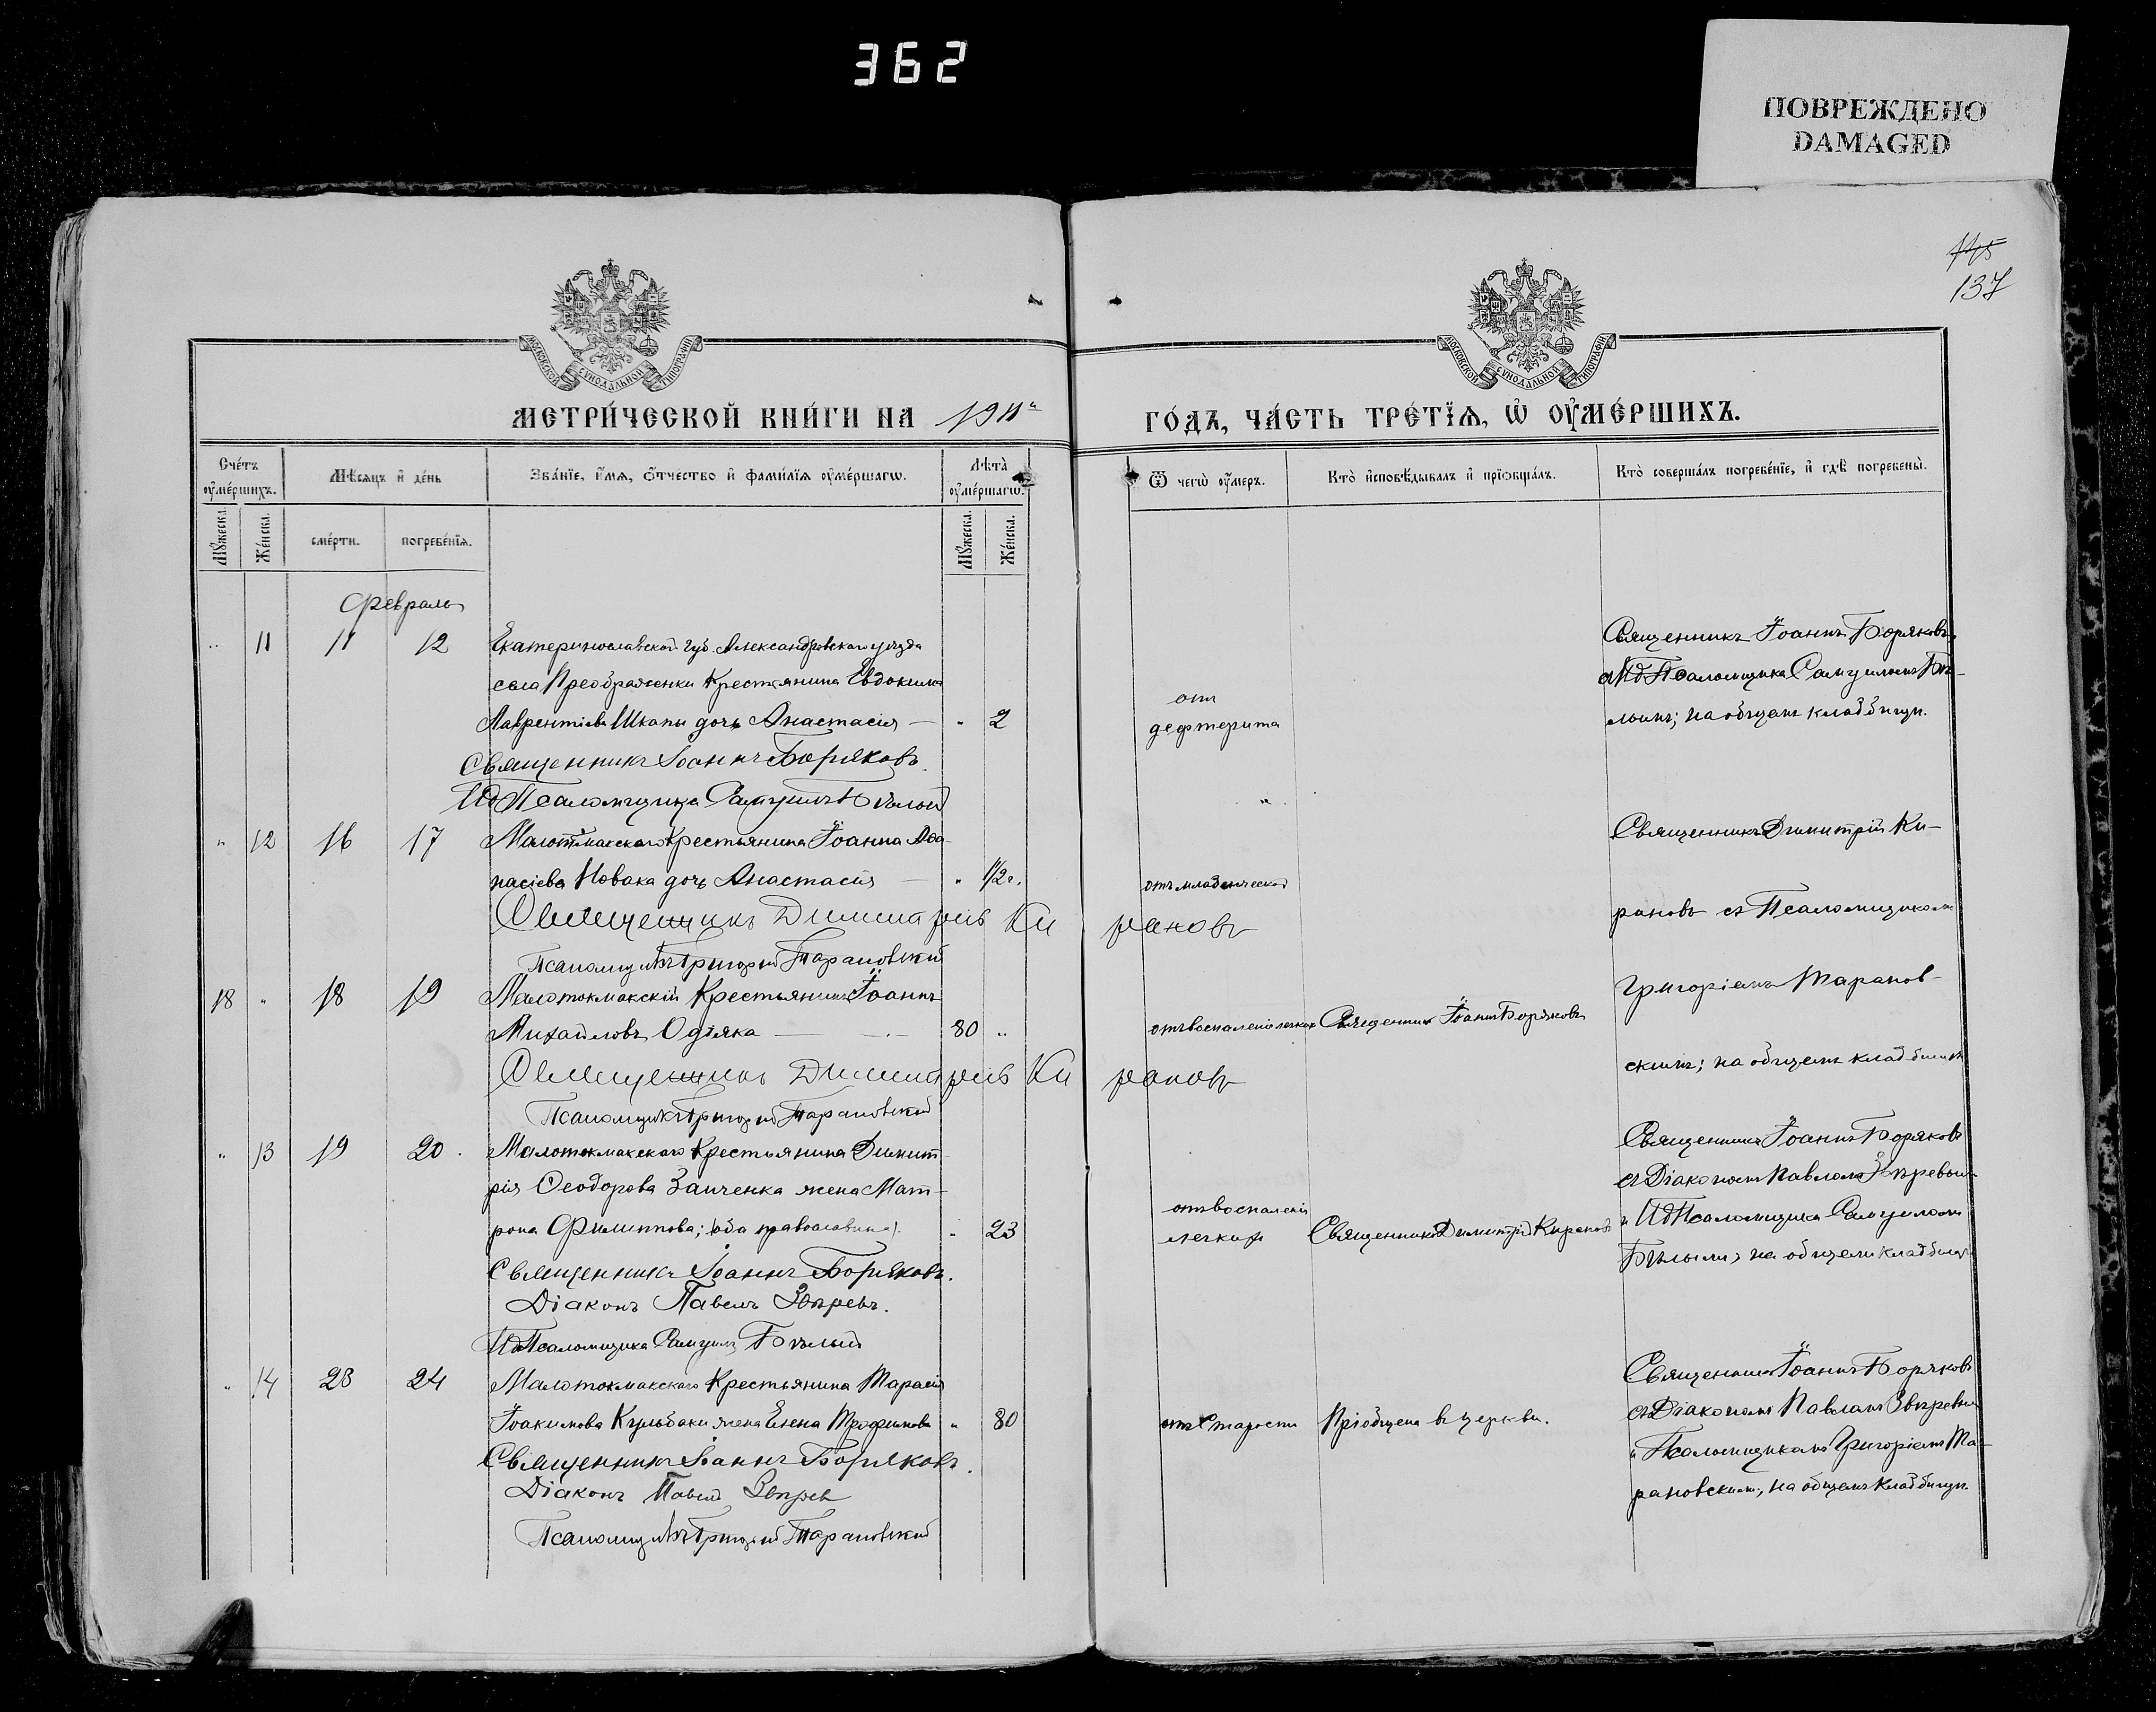 362
ПОВРЕЖДЕНО
DAMAGED
145
137
МОСКОВСКОЙ СѴНОДАЛЬНОЙ ТИПОГРАФІИ
МОСКОВСКОЙ СѴНОДАЛЬНОЙ ТИПОГРАФІИ
МЕТРИ́ЧЕСКОЙ КНИ́ГИ НА 1911
ГО́ДЪ, ЧА́СТЬ ТРЕ́ТЇѦ, Ѡ҆ ОУ҆МЕ́РШИХЪ.
Сче́тъ оу҆ме́ршихъ.
Мѣ́сяцъ и҆ де́нь
Зва́нїе, и҆́мя, ѻ҆́тчество и҆ фами́лїя оу҆ме́ршагѡ.
Лѣ́та оу҆ме́ршагѡ.
Ѿ чегѡ̀ оу҆́меръ.
Кто̀ и҆сповѣ́дывалъ и҆ прїѡбща́лъ.
Кто̀ соверша́лъ погребе́нїе, и҆ гдѣ̀ погребены̀.
Мꙋ́жеска.
Же́нска.
сме́рти.
погребе́нїя.
Мꙋ́жеска.
Же́нска.
Февраль
" 11 11 12 Екатеринославской губ. Александровскаго уѣзда
села Преображенки Крестьянина Евдокима
Лаврентіева Шкапы дочь Анастасія — " 2
Священникъ Іоаннъ Боряковъ.
ИдПсаломщика Самуилъ Бѣлый
от
дефтерита
Священникъ Іоаннъ Боряковъ
съ ИдПсаломщика Самуиломъ Бѣ-
лымъ; на общемъ кладбищѣ.
" 12 16 17 Малотокмакскаго Крестьянина Іоанна Аѳа-
насіева Новака дочь Анастасія — " 1/2 г.
Священникъ Димитрій Ки раковъ
Псаломщикъ Григорій Тарановскій
отъ младенческой
Священникъ Димитрій Ки-
раковъ съ Псаломщикомъ
Григоріемъ Таранов-
скимъ; на общемъ кладбищѣ
18 " 18 19 Малотокмакскій Крестьянинъ Іоаннъ
Михайловъ Одіяка — 80 "
Священникъ Димитрій Ки раковъ
Псаломщикъ Григорій Тарановскій
отъ воспаленія легкихъ Священникъ Іоаннъ Боряковъ
" 13 19 20 Малотокмакскаго Крестьянина Димит-
рія Ѳеодорова Заиченка жена Мат-
рона Филиппова; (оба православные). " 23
Священникъ Іоаннъ Боряковъ.
Діаконъ Павелъ Звѣревъ.
ИдПсаломщика Самуилъ Бѣлый
отъ воспаленія
легкихъ Священникъ Димитрій Кираковъ
Священникъ Іоаннъ Боряковъ
съ Діакономъ Павломъ Звѣревымъ
и ИдПсаломщика Самуиломъ
Бѣлымъ, на общемъ кладбищѣ
" 14 23 24 Малотокмакскаго Крестьянина Тарасія
Іоакимова Кульбаки жена Елена Трофимова " 80
Священникъ Іоаннъ Боряковъ.
Діаконъ Павелъ Звѣрев
Псаломщикъ Григорій Тарановскій
отъ Старости Пріобщена въ церкви.
Священникъ Іоаннъ Боряковъ
съ Діакономъ Павломъ Звѣревым
и Псаломщикомъ Григоріемъ Та-
рановскимъ, на общемъ кладбищѣ.